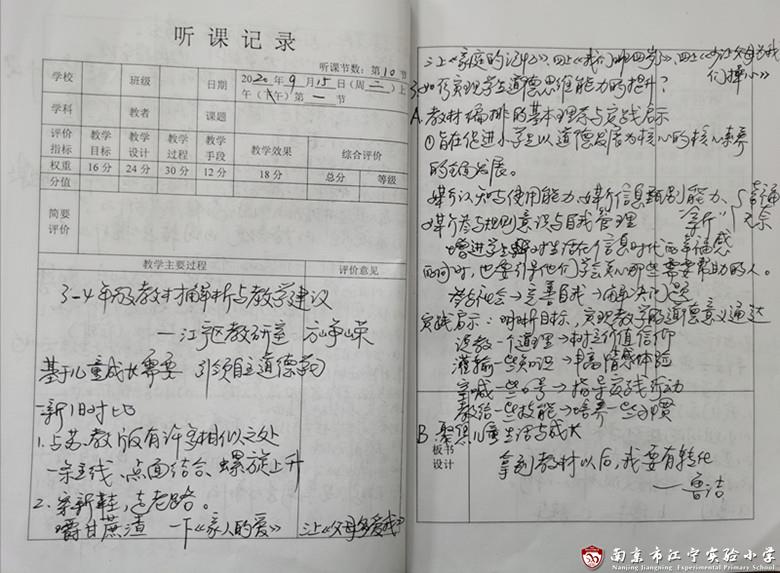 听课记录
听课节数：第10节
学校 班级 日期 2020年9月15日（周二）上午（下午）第一节
学科 教者 课题
评价指标 教学目标 教学设计 教学过程 教学手段 教学效果 综合评价
权重 16分 24分 30分 12分 18分 总分 等级
分值
简要评价
教学主要过程 评价意见
3-4年级教材解析与教学建议
—江宁区教研室
基于儿童成长需要 引领自主道德学习
新旧对比
1.与苏教版有许多相似之处
一条主线、点面结合、螺旋上升
2.穿新鞋，走老路。
嚼甘蔗渣 一下《家人的爱》 三上《父母多爱我》
三上《家庭的记忆》、四上《我们四年级了》、四上《少让父母为我们操心》
3.如何实现学生道德思维能力的提升？
A.教材编排的基本理念与实践启示
①旨在促进小学生以道德发展为核心的核心素养
的全面发展。
媒介认知与使用能力、媒介信息甄别能力、
媒介参与规则意识与自我管理
增进学生对生活在信息时代的幸福感
的同时，也要引导他们学会关心那些需要帮助的人。
参与社会→完善自我→解决问题
实践启示：明晰目标，实现教学的道德意义通达
说教一个道理→树立价值信仰
灌输一些知识→丰富情感体验
空喊一些口号→指导实践行动
教给一些技能→培养一些习惯
B.聚焦儿童生活与成长
板书设计
拿到教材以后，我要有转化
—鲁洁
南京市江宁实验小学
Nanjing Jiangning Experimental Primary School